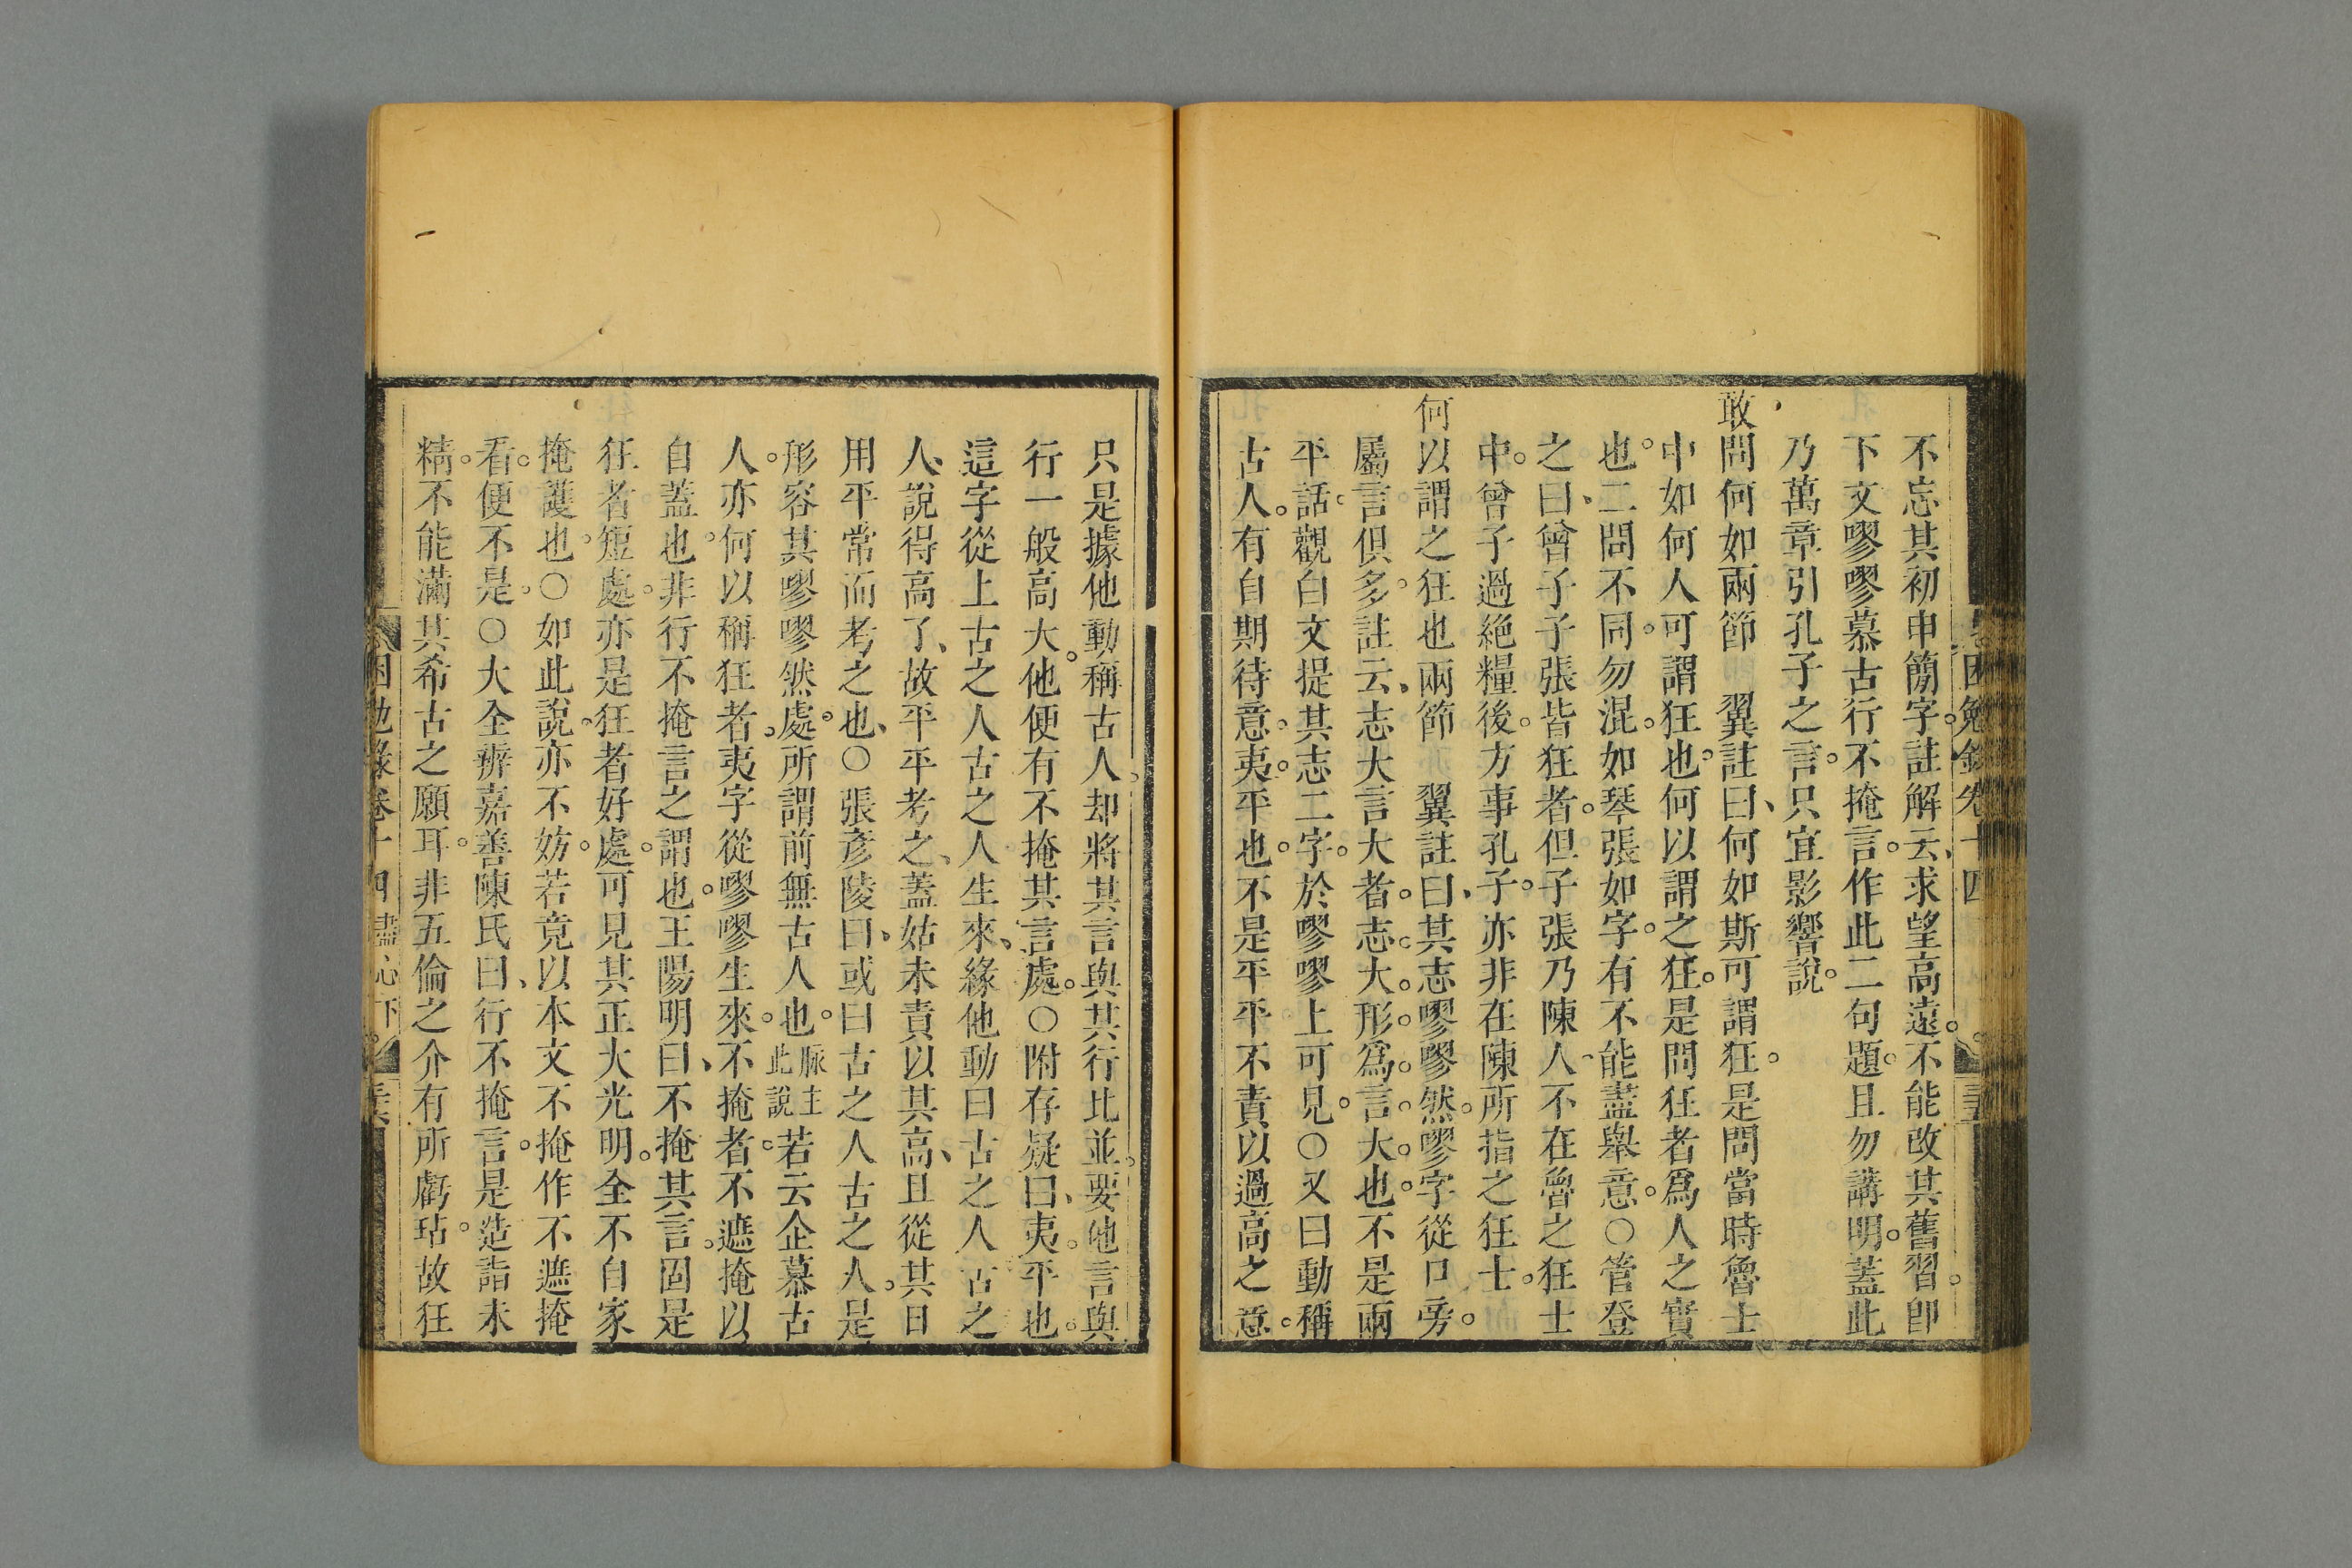 不忘其初申簡字註解云求望高遠不能改其舊習卽
下文嘐嘐慕古行不掩言作此二句題且勿講明蓋此
乃萬章引孔子之言只宜影響說
敢問何如兩節　翼註曰何如斯可謂狂是問當時魯士
中如何人可謂狂也何以謂之狂是問狂者爲人之實
也二問不同勿混如琴張如字有不能盡舉意○管登
之曰曾子子張皆狂者但子張乃陳人不在魯之狂士
中曾子過絕糧後方事孔子亦非在陳所指之狂士
何以謂之狂也兩節　翼註曰其志嘐嘐然嘐字從口旁
屬言俱多註云志大言大者志大形爲言大也不是兩
平話觀白文提其志二字於嘐嘐上可見○又曰動稱
古人有自期待意夷平也不是平平不責以過高之意
困勉錄卷十四
只是據他動稱古人却將其言與其行比並要他言與
行一般高大他便有不掩其言處○附存疑曰夷平也
這字從上古之人古之人生來緣他動曰古之人古之
人說得高了故平平考之蓋姑未責以其高且從其日
用平常而考之也○張彥陵曰或曰古之人古之人是
形容其嘐嘐然處所謂前無古人也脈主此說若云企慕古
人亦何以稱狂者夷字從嘐嘐生來不掩者不遮掩以
自蓋也非行不掩言之謂也王陽明曰不掩其言固是
狂者短處亦是狂者好處可見其正大光明全不自家
掩護也○如此說亦不妨若竟以本文不掩作不遮掩
看便不是○大全辨嘉善陳氏曰行不掩言是造詣未
精不能滿其希古之願耳非五倫之介有所虧玷故狂
困勉錄卷十四盡心下